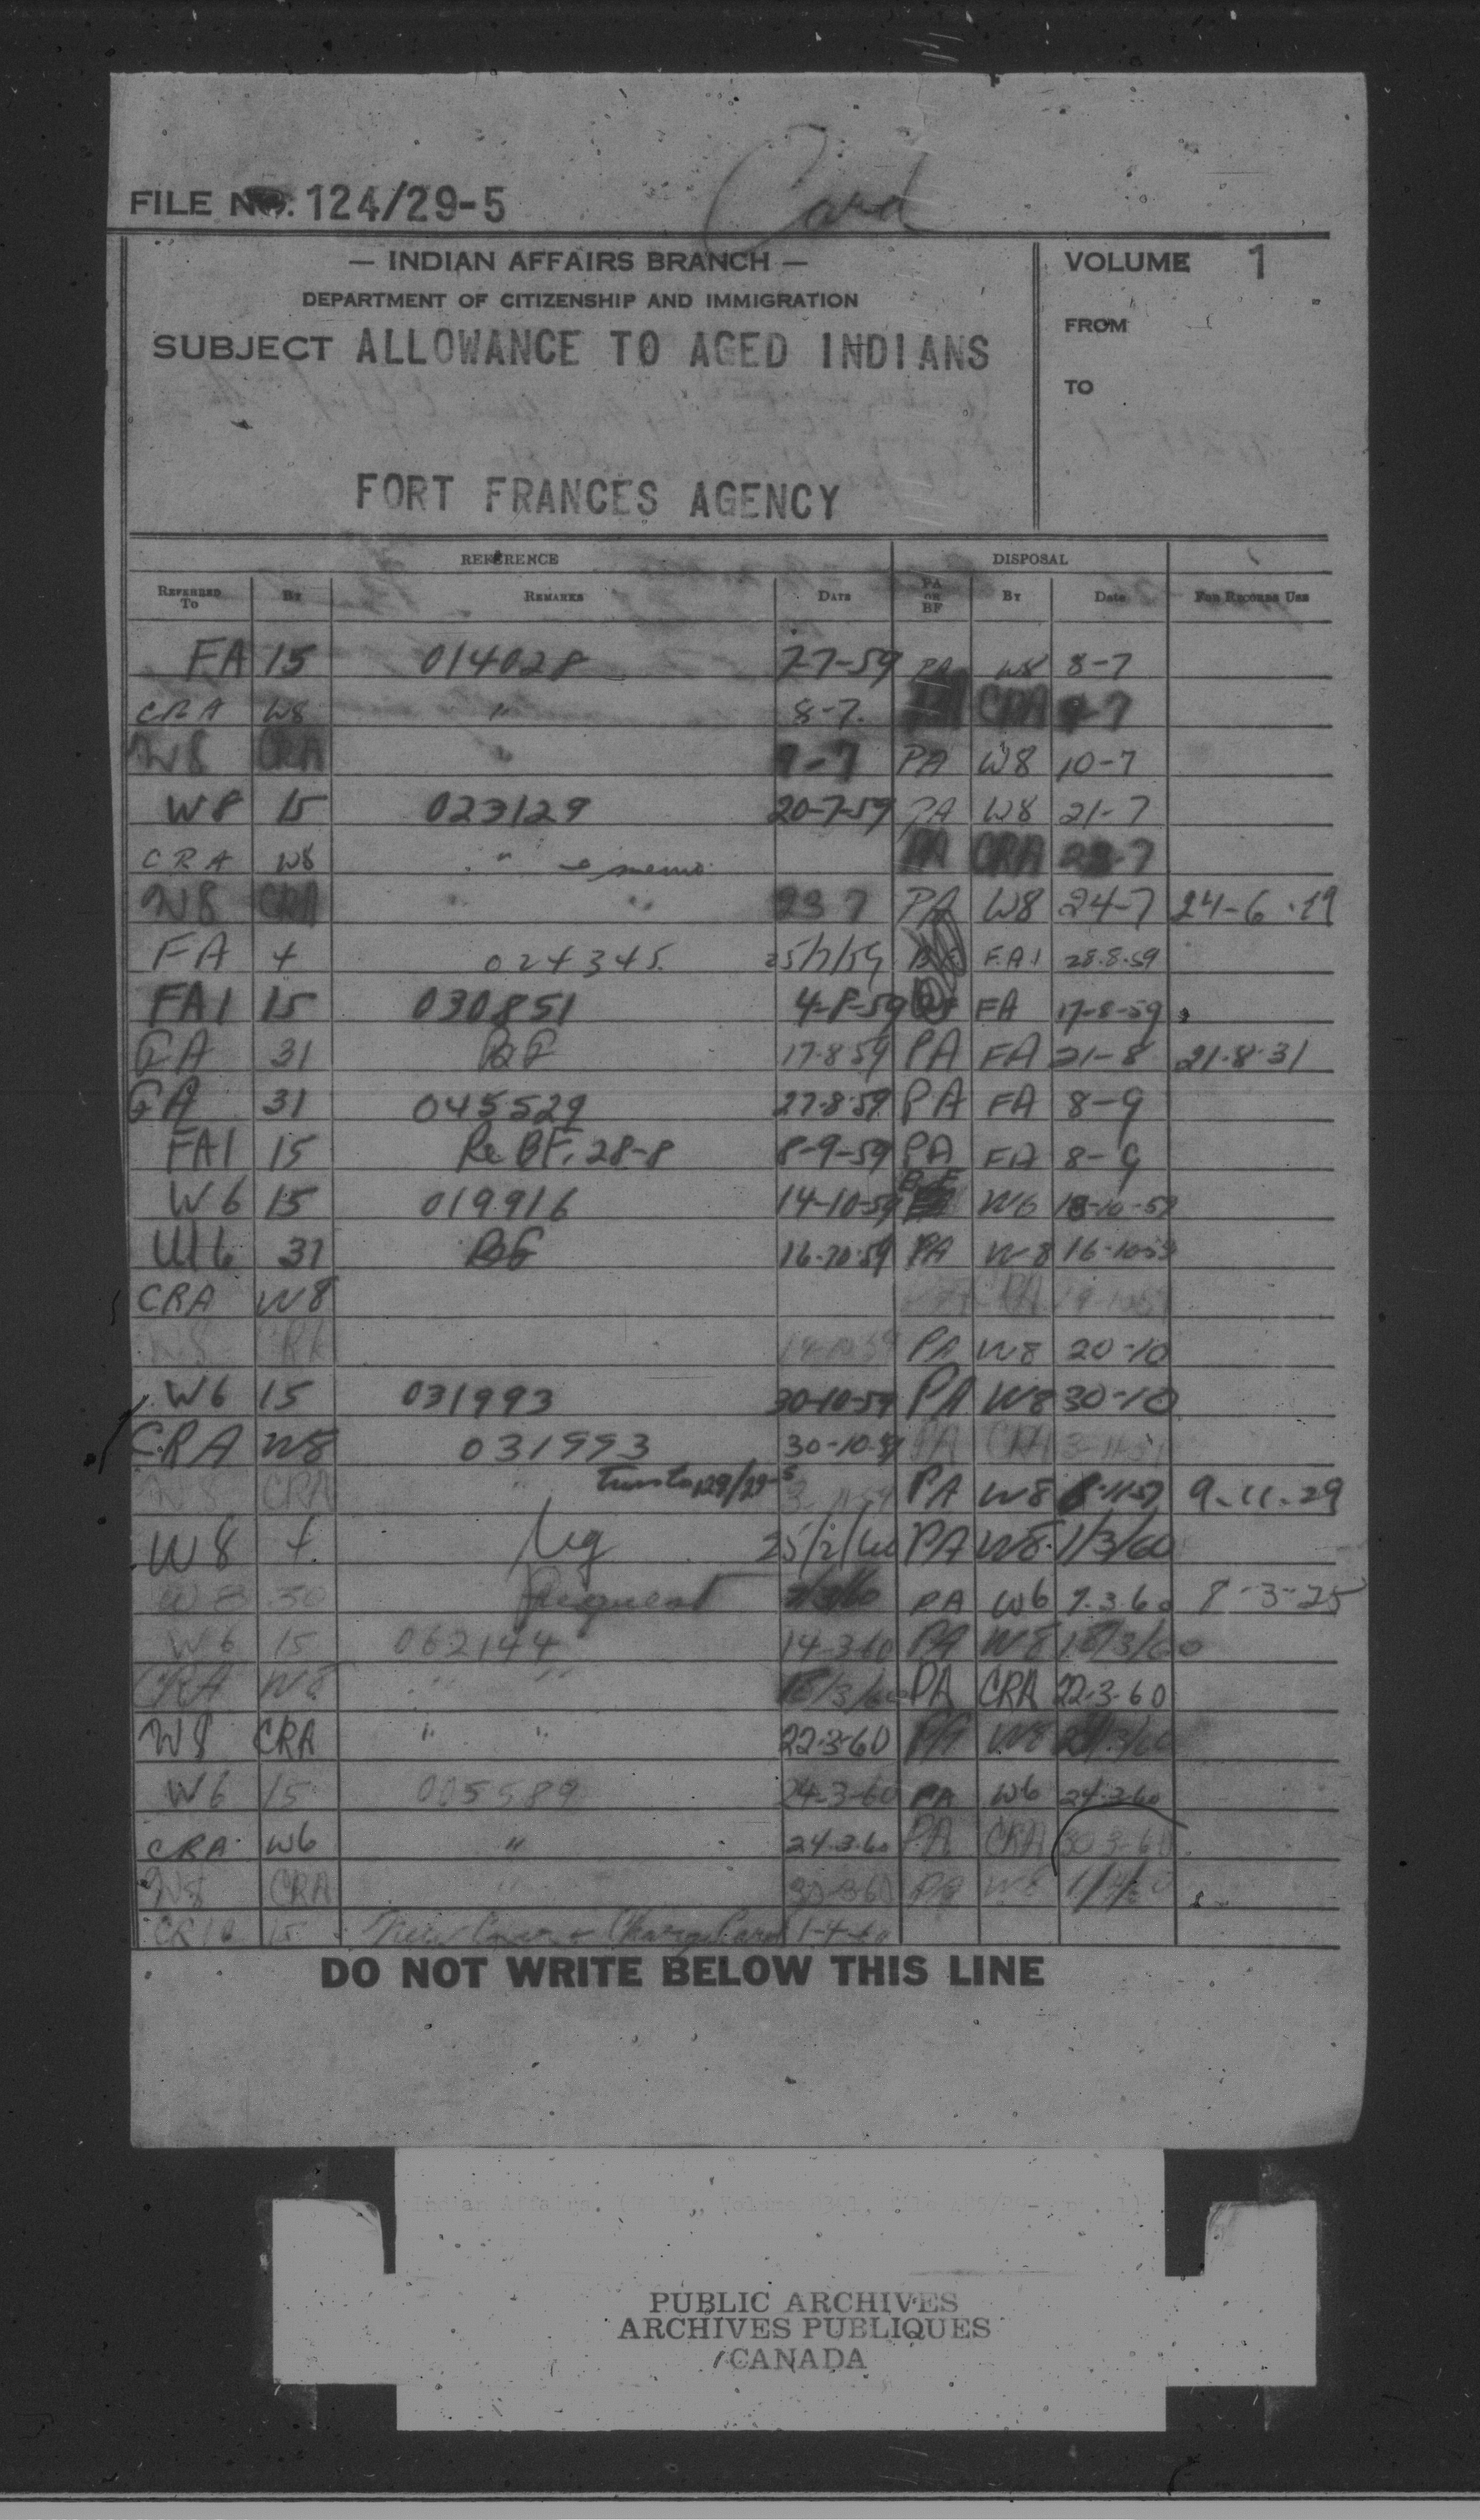 Card
FILE NO. 124/29-5
— INDIAN AFFAIRS BRANCH —
DEPARTMENT OF CITIZENSHIP AND IMMIGRATION
SUBJECT ALLOWANCE TO AGED INDIANS
FORT FRANCES AGENCY
VOLUME 1
FROM
TO
REFERENCE DISPOSAL
REFERRED To BY REMARKS DATE PA OR BF BY Date FOR RECORDS USE
FA 15 014028 7-7-59 PA W8 8-7
CRA W8 " 8-7. PA CRA 9-7
W8 CRA " 9-7 PA W8 10-7
W8 15 023129 20-7-59 PA W8 21-7
CRA W8 " memo PA CRA 23-7
W8 CRA " " 23 7 PA W8 24-7 24-6.19
FA + 024345. 25/7/59 BF F.A1 28.8.59
FA1 15 030851 4-8-59 BF FA 17-8-59
FA 31 BF 17-8-59 PA FA 21-8 21.8.31
FA 31 045529 27-8-59 PA FA 8-9
FA1 15 Re BF. 28-8 8-9-59 PA FA 8-9
W6 15 019916 14-10-59 BF W6 -10-59
W6 31 BF 16-10-59 PA W8 16-10-59
CRA W8 CRA 19-10-59
W8 CRA 19-10-59 PA W8 20-10
W6 15 031993 30-10-59 PA W8 30-10
CRA W8 031993 30-10-59 PA CRA 3-11-59
W8 CRA " 129/29-5 3-11-59 PA W8 -11-59 9-11-29
W8 + 25/2/60 PA W8. 1/3/60
W8 30 Request /3/60 PA W6 7.3.60 8-3-25
W6 15 062144 14-3-60 PA W8 15/3/60
CRA W8 " " 15/3/60 PA CRA 22-3-60
W8 CRA " " 22-3-60 PA W8 /3/60
W6 15 005589 24-3-60 PA W6 24-3-60
CRA W6 " 24.3.60 PA CRA 30-3-60
W8 CRA " 30-3-60 PA W8 1/4/60
15 New Cover + Charge Card 1-4-60
DO NOT WRITE BELOW THIS LINE
PUBLIC ARCHIVES
ARCHIVES PUBLIQUES
CANADA